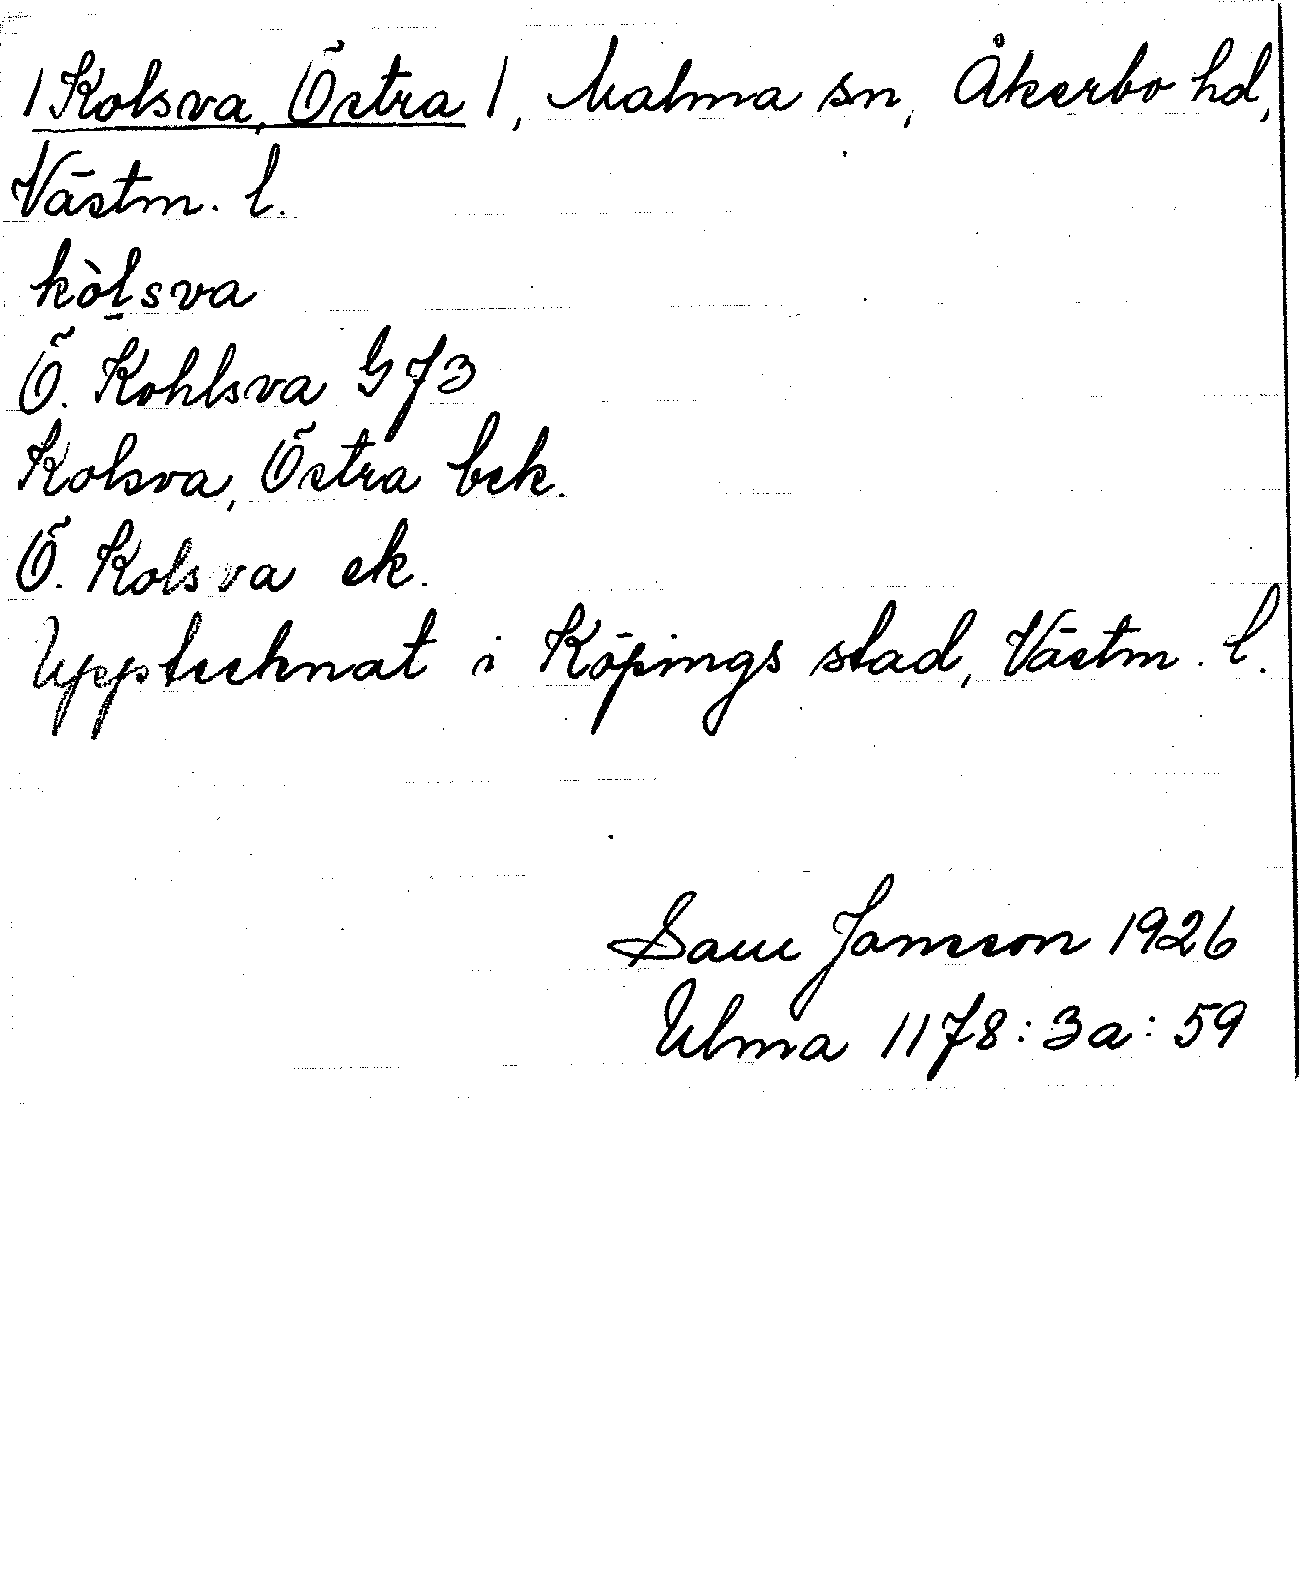 /Kolsva, Östra/, Malma sn, Åkerbo hd,
Västm. l.
kòl̠sva
Ö. Kohlsva G 73
Kolsva, Östra bek.
Ö. Kolsva ek.
Upptecknat i Köpings stad, Västm. l.
Sam Jansson 1926
Ulma 1178:3a:59